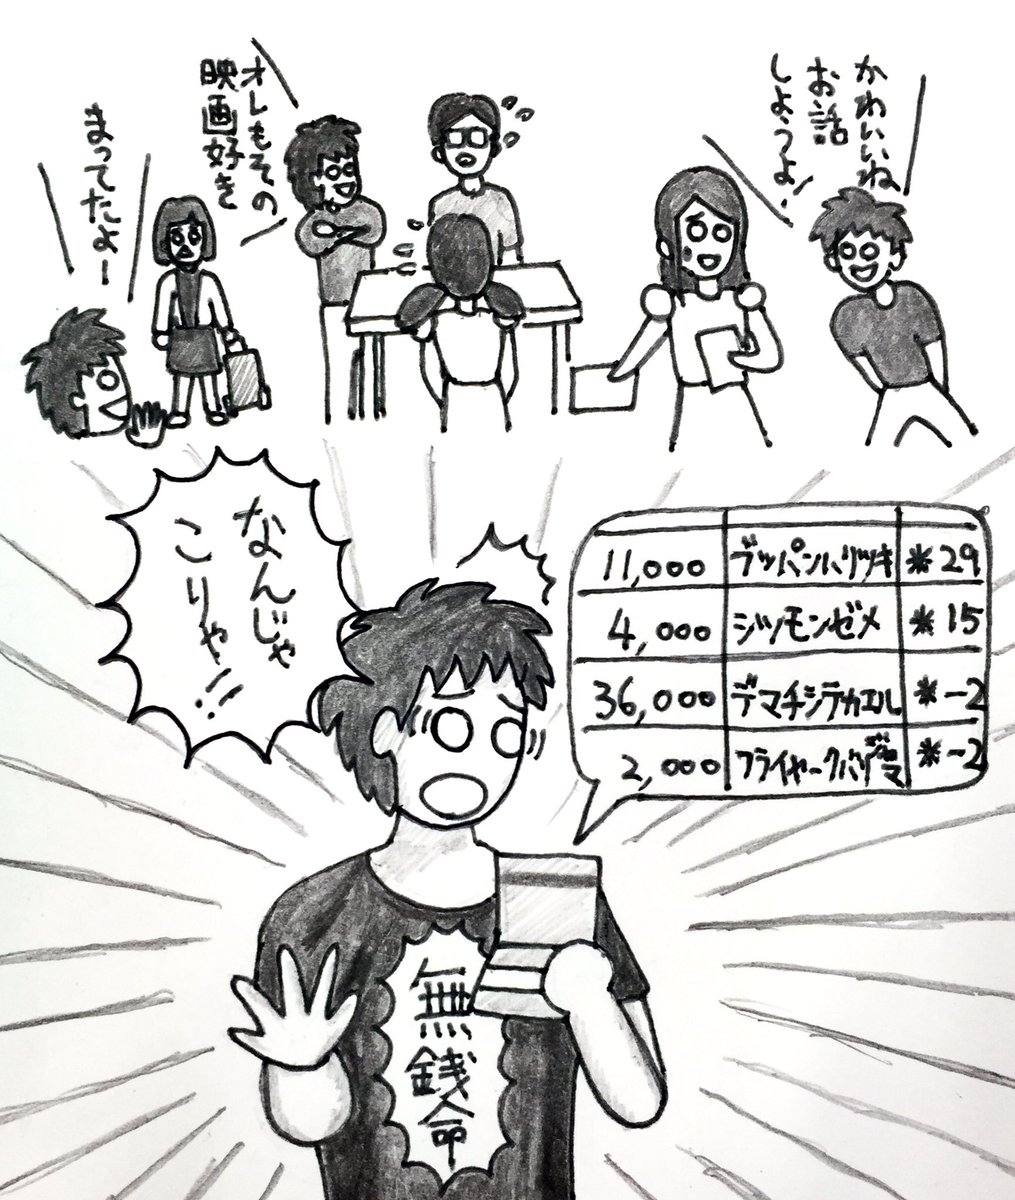 かわいいね
お話
しようよ!
オレもその
映画好き
まってたよー
なんじゃ
こりゃ!!
11,000 ブッパンハリツキ *29
4,000 シツモンゼメ *15
36,000 デマチシテカエル *-2
2,000 フライヤークバリジャマ *-2
無銭命